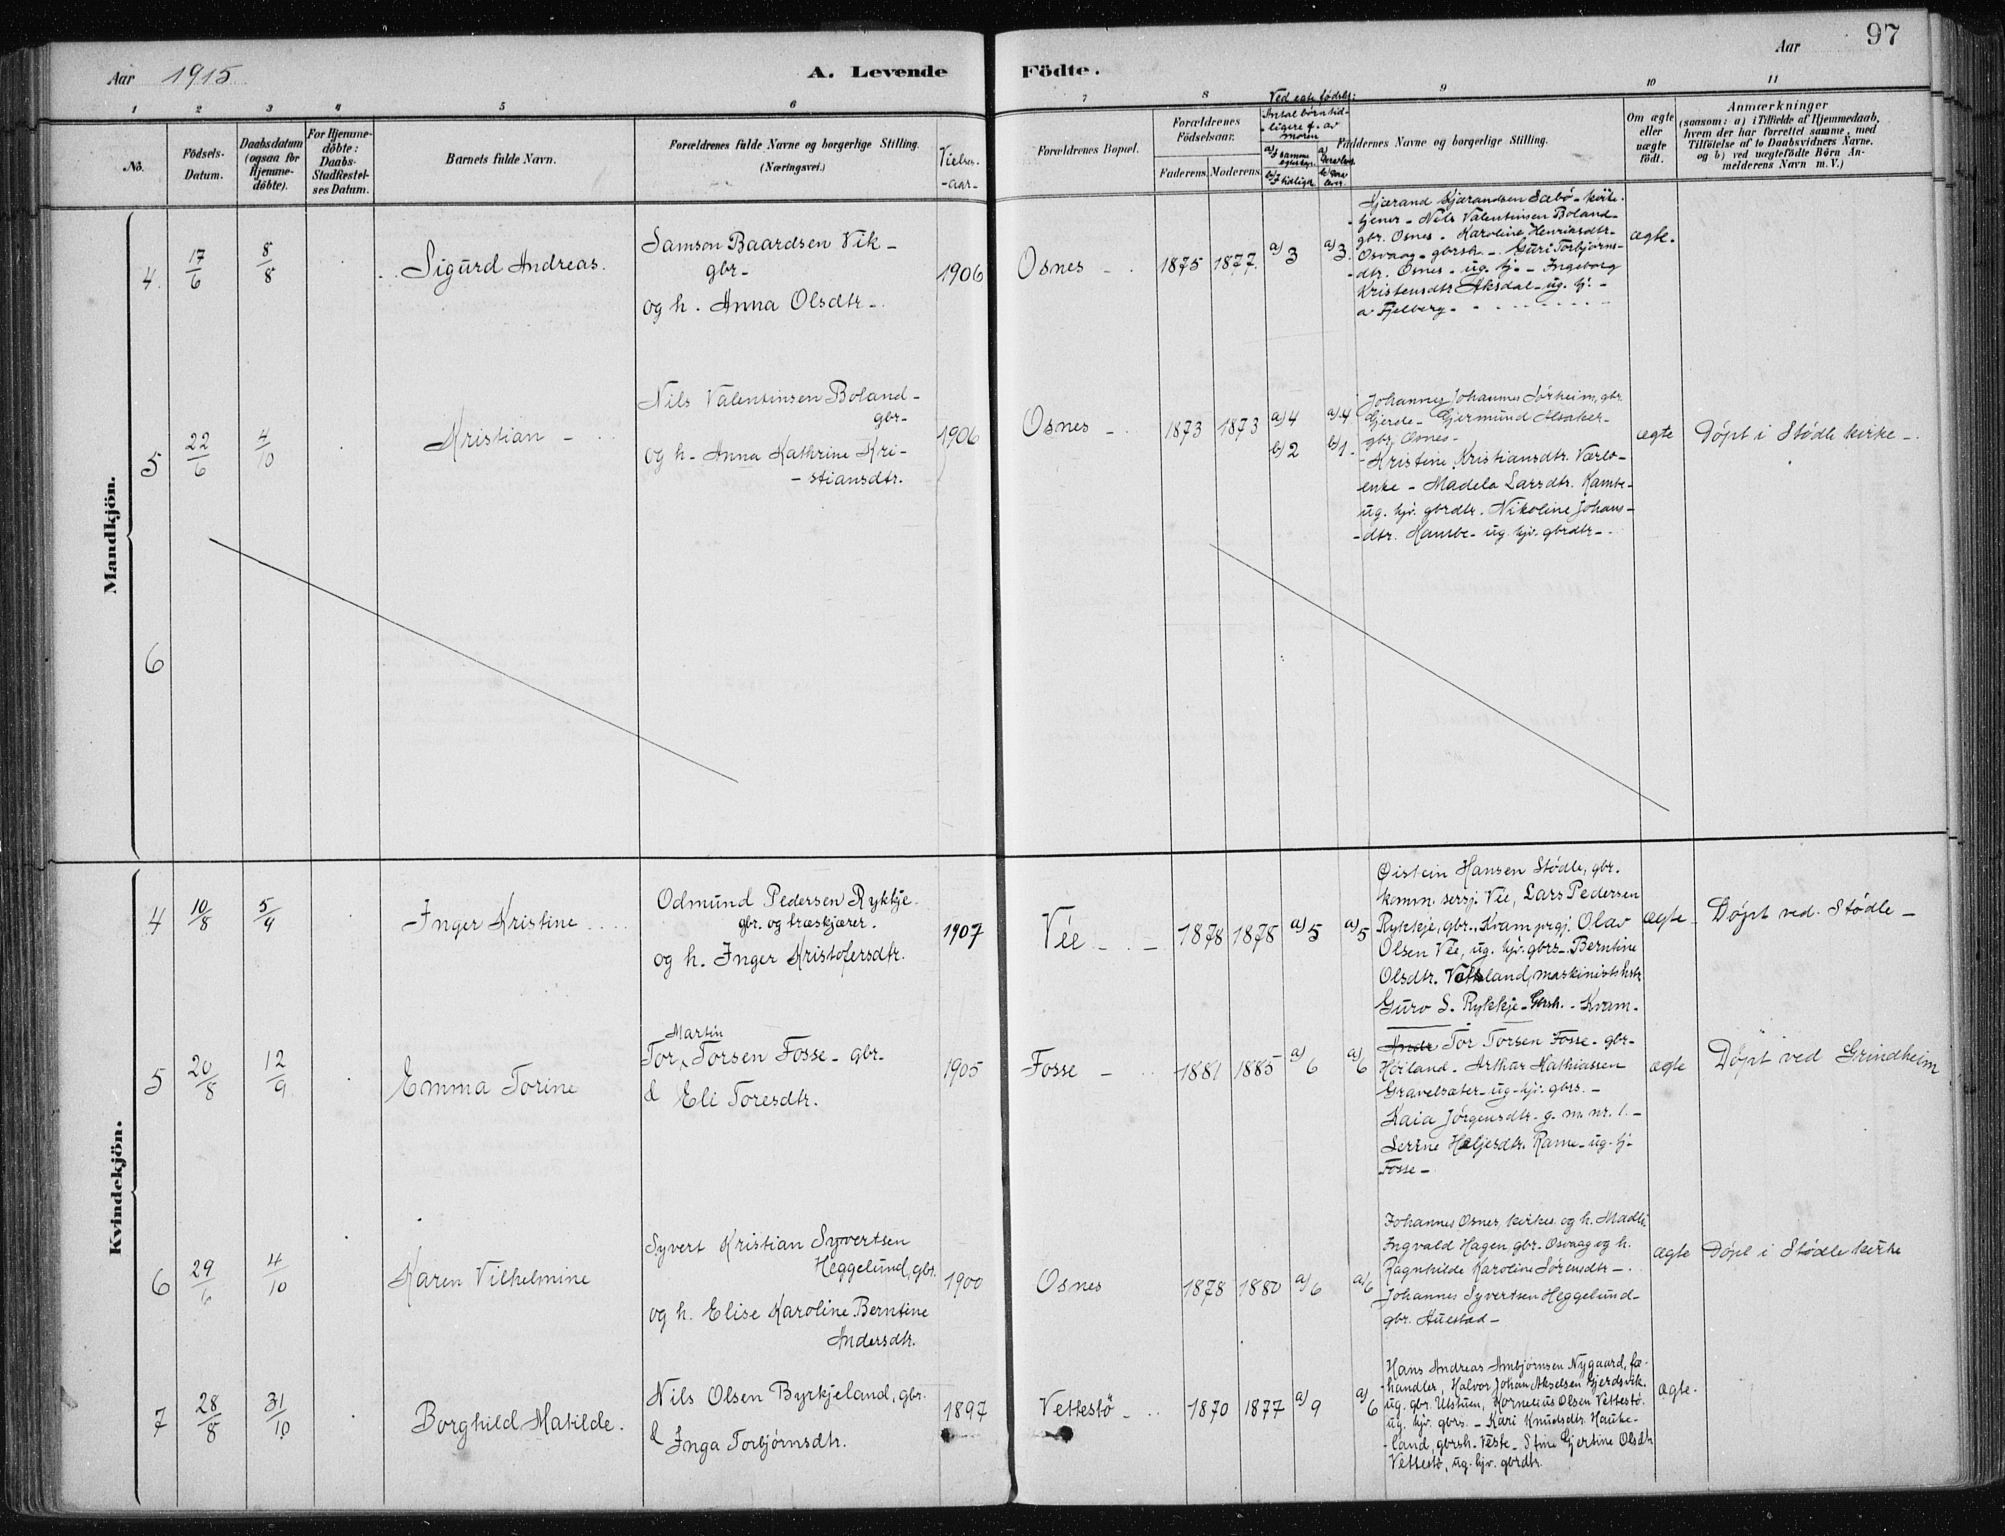 Aar 1915
A. Levende
Födte.
Aar 97
1 2 3 4 5 6 7 8 9 10 11
No.
Födsels-
Datum.
Daabsdatum
(ogsaa for
Hjemme-
döbte).
For Hjemme-
döbte:
Daabs-
Stadfæstel-
ses Datum.
Barnets fulde Navn.
Forældrenes fulde Navne og borgerlige Stilling.
(Næringsvei.)
Vielses-
-aar-
Forældrenes Bopæl.
Forældrenes
Födselsaar.
Faderens.
Moderens.
Ved egte fødsler:
Antal børn tid-
ligere f. av
moren
Faddernes Navne og borgerlige Stilling.
Om ægte
eller
uægte
födt.
Anmærkninger
(saasom: a) i Tilfælde af Hjemmedaab,
hvem der har forrettet samme, med
Tilföielse af to Daabsvidners Navne.
og b) ved uægtefödte Börn An-
melderens Navn m. V.)
Mandkjön.
4.
17/6
8/8
Sigurd Andreas.
Samson Baardsen Vik -
gbr-
og h. Anna Olsdtr -
1906
Osnes -
1875
1877.
a) 3
a) 3.
Kjærand Kjærandsen Sæbö - kirke-
-tjener - Nils Valentinsen Boland-
gbr. Osnes - Karoline Henriksdtr-
Osvaag - gbrsh. - Guri Torbjørns-
-dtr. Osnes - ug. hj. - Ingeborg
Kristensdtr Aksdal - ug. hj. -
a Fjelberg -
ægte.
5
22/6
4/10
Kristian -
Nils Valentinsen Boland -
gbr-
og h- Anna Kathrine Kri-
- stiansdtr.
1906
Osnes -
1873
1873
a) 4
b) 2
a) 4
b) 1.
Johannes Johannes Sørheim, gbr.
Gjerde - Gjermund Alsaker-
gbr, Osnes -
- Kristine Kristiansdtr.
enke - Madela Larsdtr. Kambe-
ug. hjv. gbrdtr. Nikoline Johans-
-dtr. Hambe - ug. hjv. gbrdtr -
ægte
Döpt i Stödle kirke -
6
Kvindekjön.
4
10/8
5/9
Inger Kristine
Odmund Pedersen Rykkje.
gbr. og træskjærer.
og h. Inger Kristofersdtr.
1907
Vée -
1878
1878
a) 5
a) 5
Øistein Hansen Stödle, gbr.
komm. sersj. Vée, Lars Pedersen
Rykkje, gbr., Kvam prgj. Olav
Olsen Vée, ug. hjv. gbrs - Berntine
Olsdtr. Vatsland, maskinistshstr
Guro S. Rykkje - Gbrsh. - Kvam -
ægte
Döpt ved Stödle -
5
20/8
12/9
Emma Torine
Martin
Tor Torsen Fosse - gbr-
& Eli Toresdtr.
1905
Fosse -
1881
1885
a) 6
a) 6
Andr Tor Torsen Fosse - gbr-
Høiland - Arthur Mathiassen
Gravelsæter - ug. hjv. gbrs. -
Kaia Jörgensdtr - g. m. nr. 1. -
Serine Heljesdtr. Rame - ug. hj-
Fosse -
ægte
Döpt ved Grindheim
6
29/6
4/10
Karen Vilhelmine
Syvert Kristian Syvertsen
Heggelund, gbr.
og h. Elise Karoline Berntine
Andersdtr.
1900
Osnes
1878
1880
a) 6
a) 6
Johannes Osnes, kirkes. og h. Madli
Ingvald Hagen, gbr. Osvaag og h.
Ragnhilde Karoline Sörensdtr -
Johannes Syvertsen Heggelund-
gbr. Auestad -
ægte
Döpt i Stödle kirke
7
28/8
31/10
Borghild Matilde.
Nils Olsen Byrkjeland, gbr.
& Inga Torbjørnsdtr.
1897
Vettestö -
1870
1877
a) 9
a) 6
Hans Andreas Ambjørnsen Nygaard, fæ-
-handler, Halvor Johan Akselsen Gjerdsvik-
ug. gbr. Utstuen, Kornelius Olsen Vettestö.
ug. hjv. gbrs. - Kari Knutsdtr. Hauke-
-land, gbrsh. - Stine Gjertine Olsdtr
Vettestö, ug. hjv. gbrdtr.
ægte.